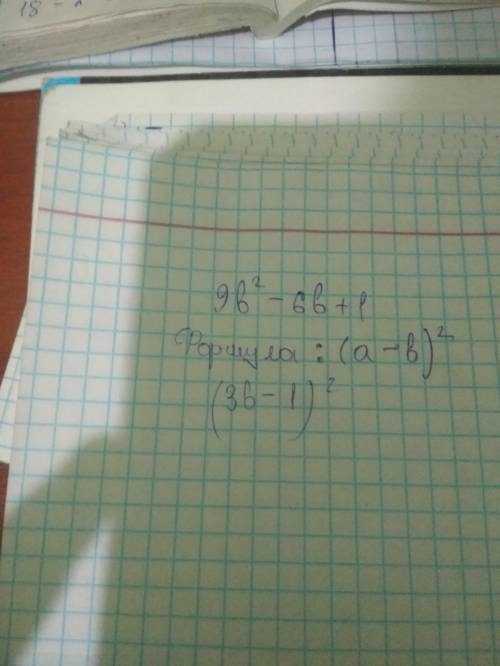 18 -
9b² - 6b + 1
Формула : (a - b)²
(3b - 1)²